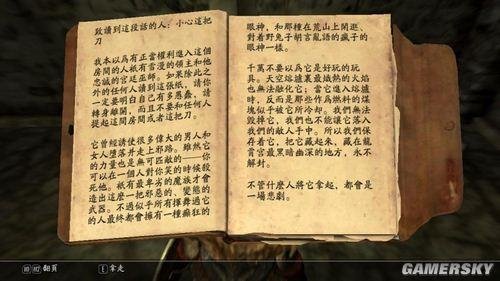 致讀到這段話的人：小心這把
刀
我本以爲有正當權利進入這個
房間的人祇有雪漫的領主和他
忠誠的宮廷巫師。如果除此之
外的任何人讀到這張紙，請你
一定要明白自己有多愚蠢，請
轉身離開，而且不要和任何人
提起這間房間或者這把刀。
它曾經誘使很多偉大的男人和
女人墮落并走上邪路。雖然它
的力量也是無可匹敵的——你
可以在一個人對你笑的時候殺
死他。祇有最卑劣的魔族才會
造出這麽一把邪惡的、變態的
武器。不過似乎所有揮舞過它
的人最終都會擁有一種癲狂的
眼神，和那種在荒山上閑逛、
對着野兔子胡言亂語的瘋子的
眼神一樣。
千萬不要以爲它是好玩的玩
具。天空熔爐裏最熾熱的火焰
也無法融化它；當它進入熔爐
時，反而是那些作爲燃料的煤
塊似乎被它所冷却。我們無法
毀掉它，我們也不能讓它落入
我們的敵人手中。所以我們保
存着它，把它藏起來，藏在龍
霄宮最黑暗幽深的地方，永不
解封。
不管什麽人將它拿起，都會是
一場悲劇。
翻頁
E 拿走
GAMERSKY